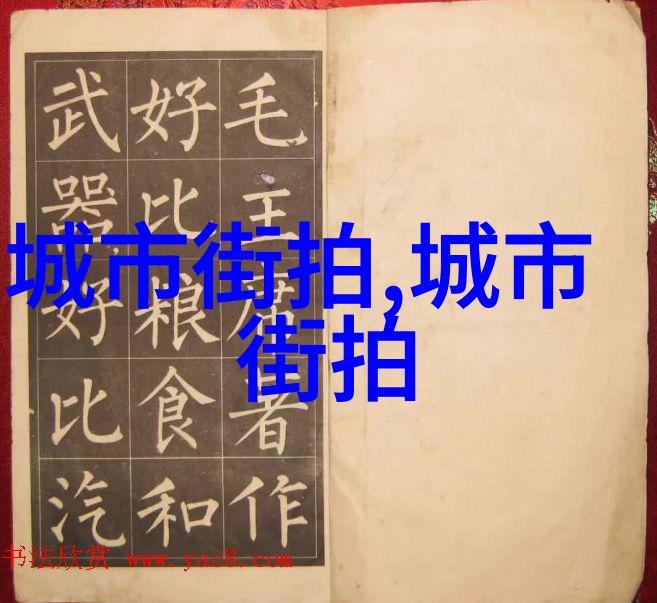 毛主席著作
好比粮食和
武器好比汽
城市街拍,城市
街拍
书法欣赏 www.yac8.com